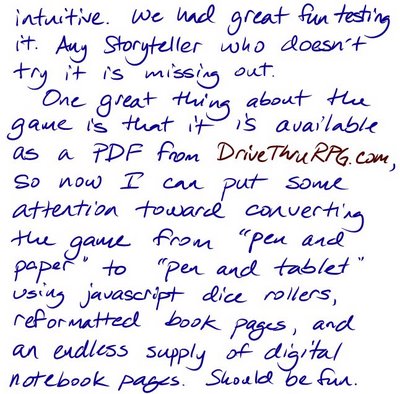 intuitive. We had great fun testing
it. Any Storyteller who doesn't
try it is missing out.
One great thing about the
game is that it is available
as a PDF from DriveThruRPG.com,
so now I can put some
attention toward converting
the game from "pen and
paper" to "pen and tablet"
using javascript dice rollers,
reformatted book pages, and
an endless supply of digital
notebook pages. Should be fun.